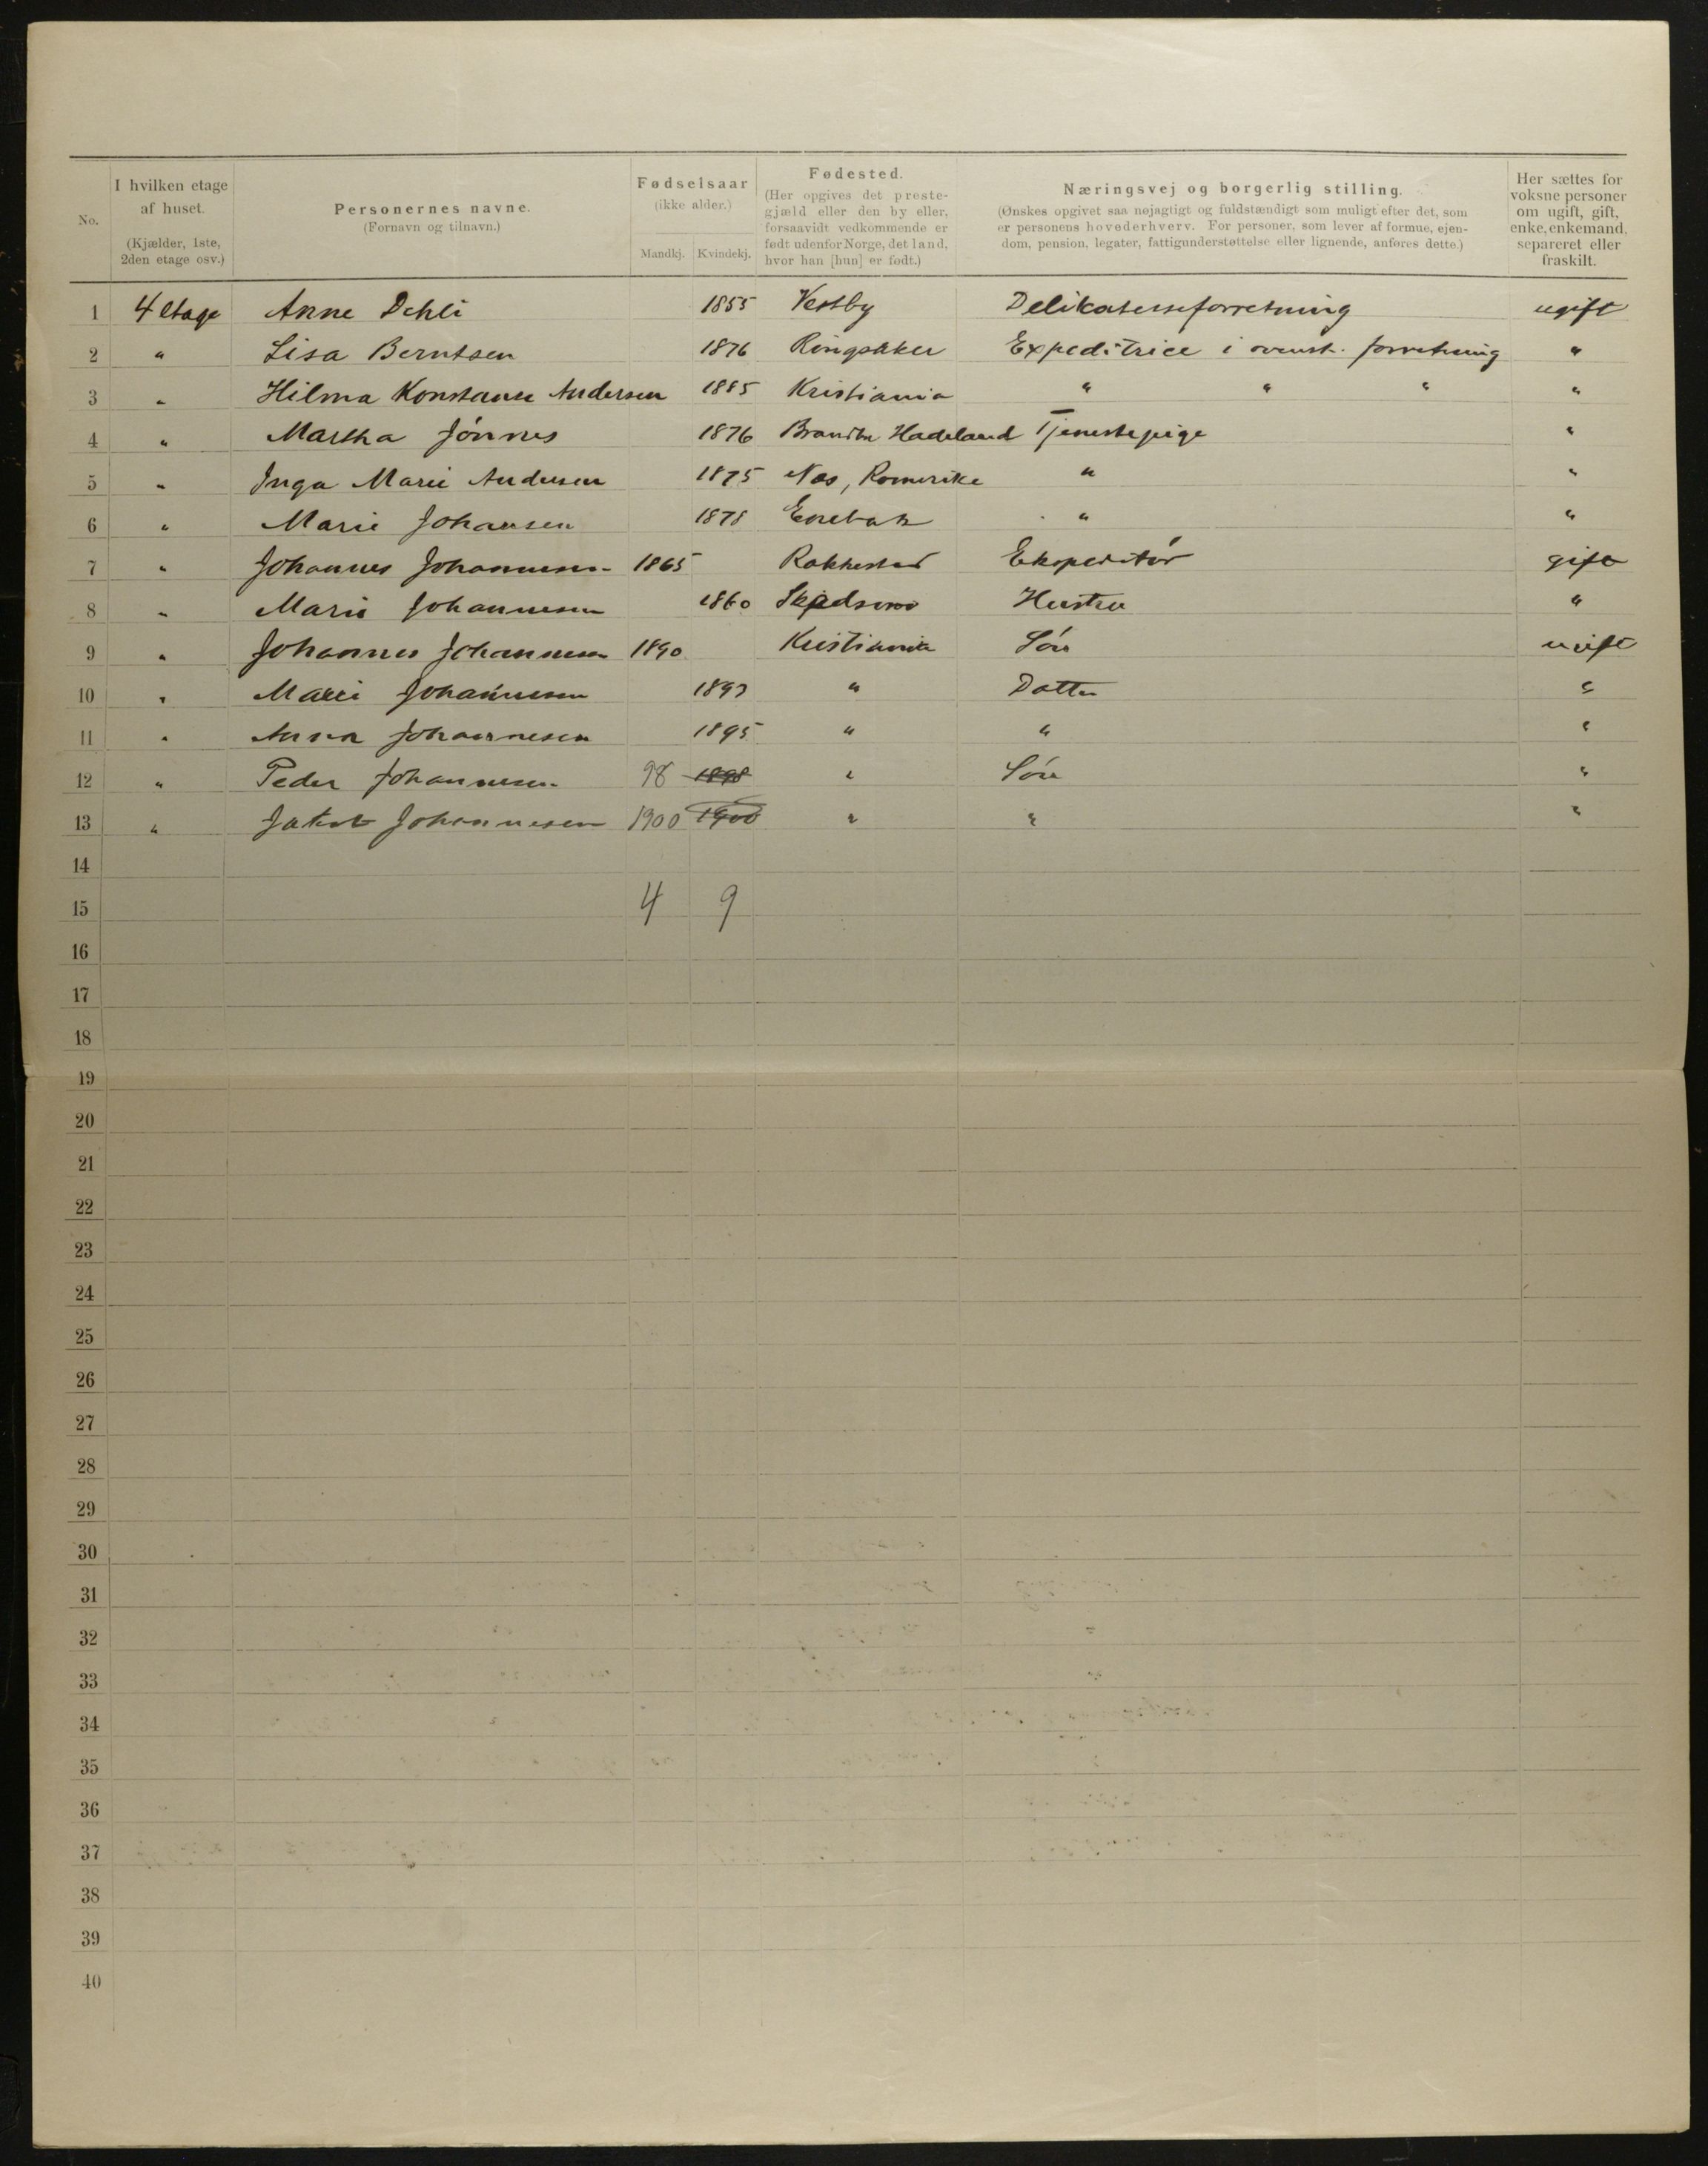 No.
I hvilken etage af huset.
(Kjælder, 1ste, 2den etage osv.)
Personernes navne.
(Fornavn og tilnavn.)
Fødselsaar
(ikke alder.)
Mandkj. Kvindekj.
Fødested.
(Her opgives det preste-
gjæld eller den by eller,
forsaavidt vedkommende er
født udenfor Norge, det land,
hvor han [hun] er født.)
Næringsvej og borgerlig stilling.
(Ønskes opgivet saa nøjagtigt og fuldstændigt som muligt efter det, som
er personens hovederhverv. For personer, som lever af formue, ejen-
dom, pension, legater, fattigunderstøttelse eller lignende, anføres dette.)
Her sættes for
voksne personer
om ugift, gift,
enke, enkemand,
separeret eller
fraskilt.
1 4 etage Anne Dehli 1855 Vestby Delikatesseforretning ugift
2 " Lisa Berntsen 1876 Ringsaker Expeditrice i ovenst. forretning "
3 " Hilma Konstanse Andersen 1885 Kristiania " " " "
4 " Martha Jønnes 1876 Brandbu Hadeland Tjenestepige "
5 " Inga Marie Andersen 1875 Nes, Romerike " "
6 " Marie Johansen 1878 Enebak " "
7 " Johannes Johannesen 1865 Rakkestad Ekspeditør gift
8 " Marie Johannesen 1860 Skedsmo Hustru "
9 " Johannes Johannesen 1890 Kristiania Søn ugift
10 " Marie Johannesen 1893 " Datter "
11 " Anna Johannesen 1895 " " "
12 " Peder Johannesen 98 1898 " Søn "
13 " Jakob Johannesen 1900 1900 " " "
14
15 4 9
16
17
18
19
20
21
22
23
24
25
26
27
28
29
30
31
32
33
34
35
36
37
38
39
40